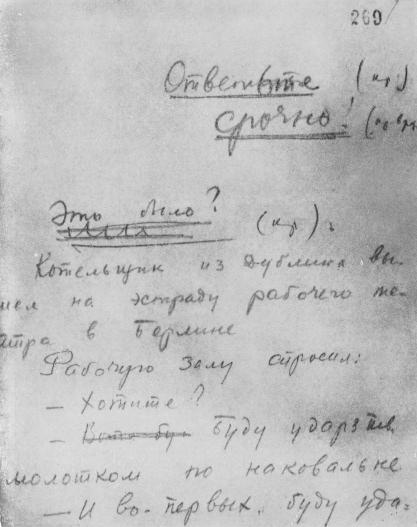 269
Ответьте (кр)
срочно!
Это было?
(кр).
Котельщик из Дублина вы-
шел на эстраду рабочего те-
атра в Берлине
Рабочую залу спросил:
– Хотите?
– Буду ударять
молотком по наковальне
– И во-первых, буду уда-